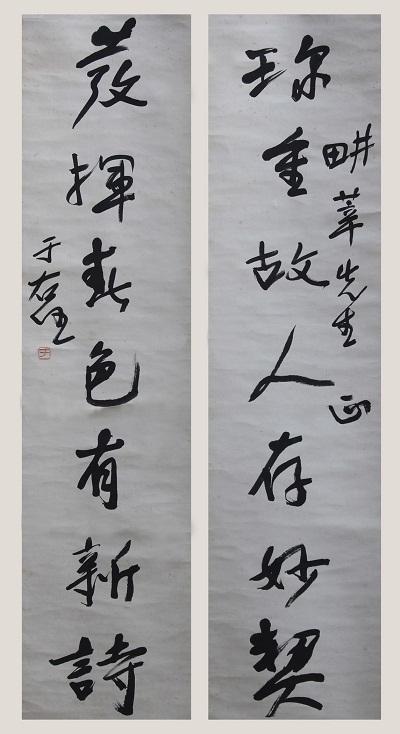 畊莘先生正
珍重故人存妙契
發揮春色有新詩
于右任